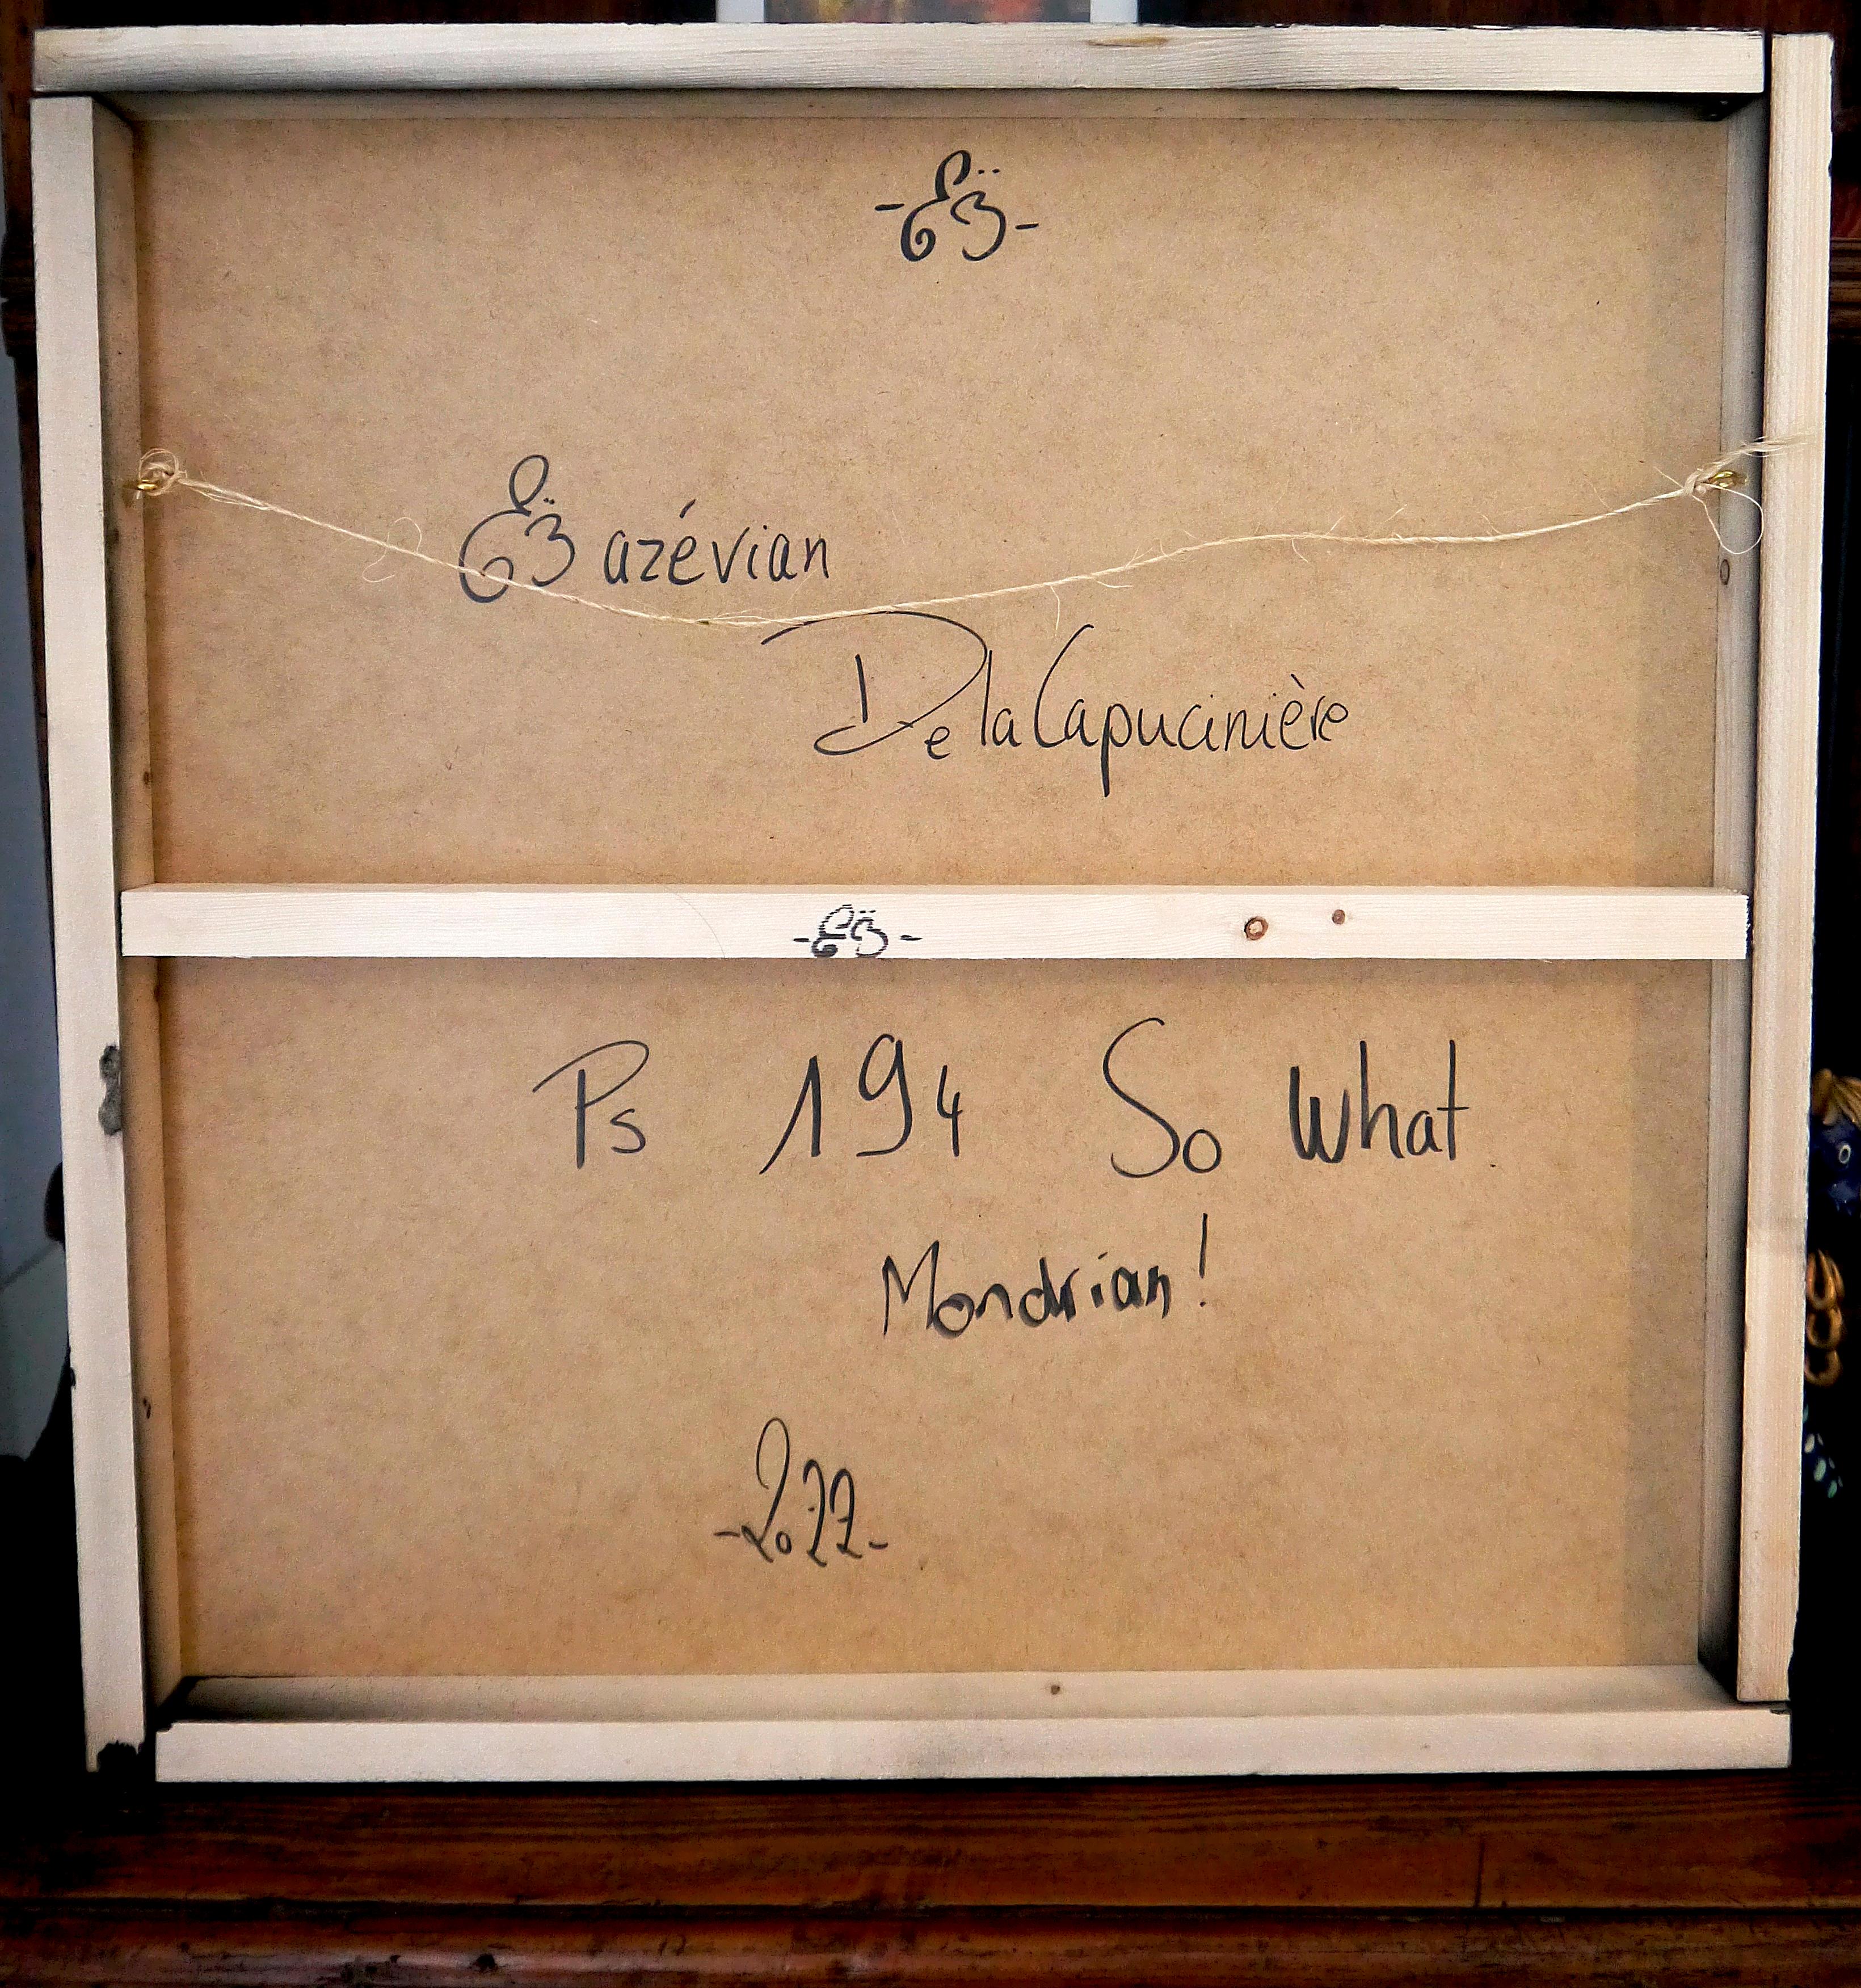 Bazévian
De la Capucinière
Ps 194 So What
Mondrian!
-2022-